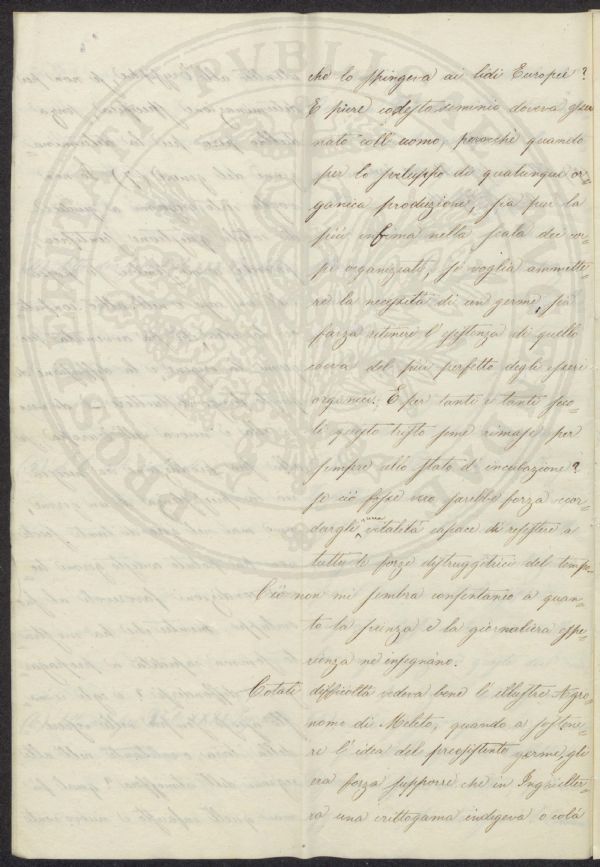 che lo spingeva ai lidi Europei?
E pure codesto dominio doveva esser
nato coll' uomo, perocchè quando
per lo sviluppo di qualunque or-
ganica produzione, sia pur la
più infima nella scala dei cor-
pi organizzati, si voglia ammette-
re la necessità di un germe, fia
forza ritenere l' esistenza di quello
coeva del più perfetto degli esseri
organici. E per tanti e tanti seco-
li questo tristo seme rimase per
sempre allo stato d' incubazione?
Se ciò fosse vero sarebbe forza accor-
dargli una vitalità capace di resistere a
tutte le forze distruggitrici del tempo.
Ciò non mi sembra consentaneo a quan-
to la scienza e la giornaliera espe-
rienza ne insegnano.
Cotale difficoltà vedeva bene l' illustre Agro-
nomo di Meleto, quando a sostene-
re l' idea del preesistente germe, gli
era forza supporre che in Inghilter-
ra una crittogama indigena o colà
PROSPERITATI PUBLICAE AUGENDAE